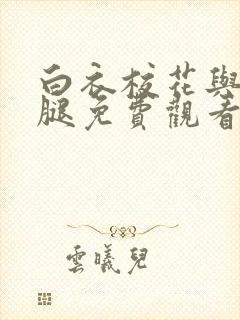 白衣校花與
腿免費觀看
雲曦兒